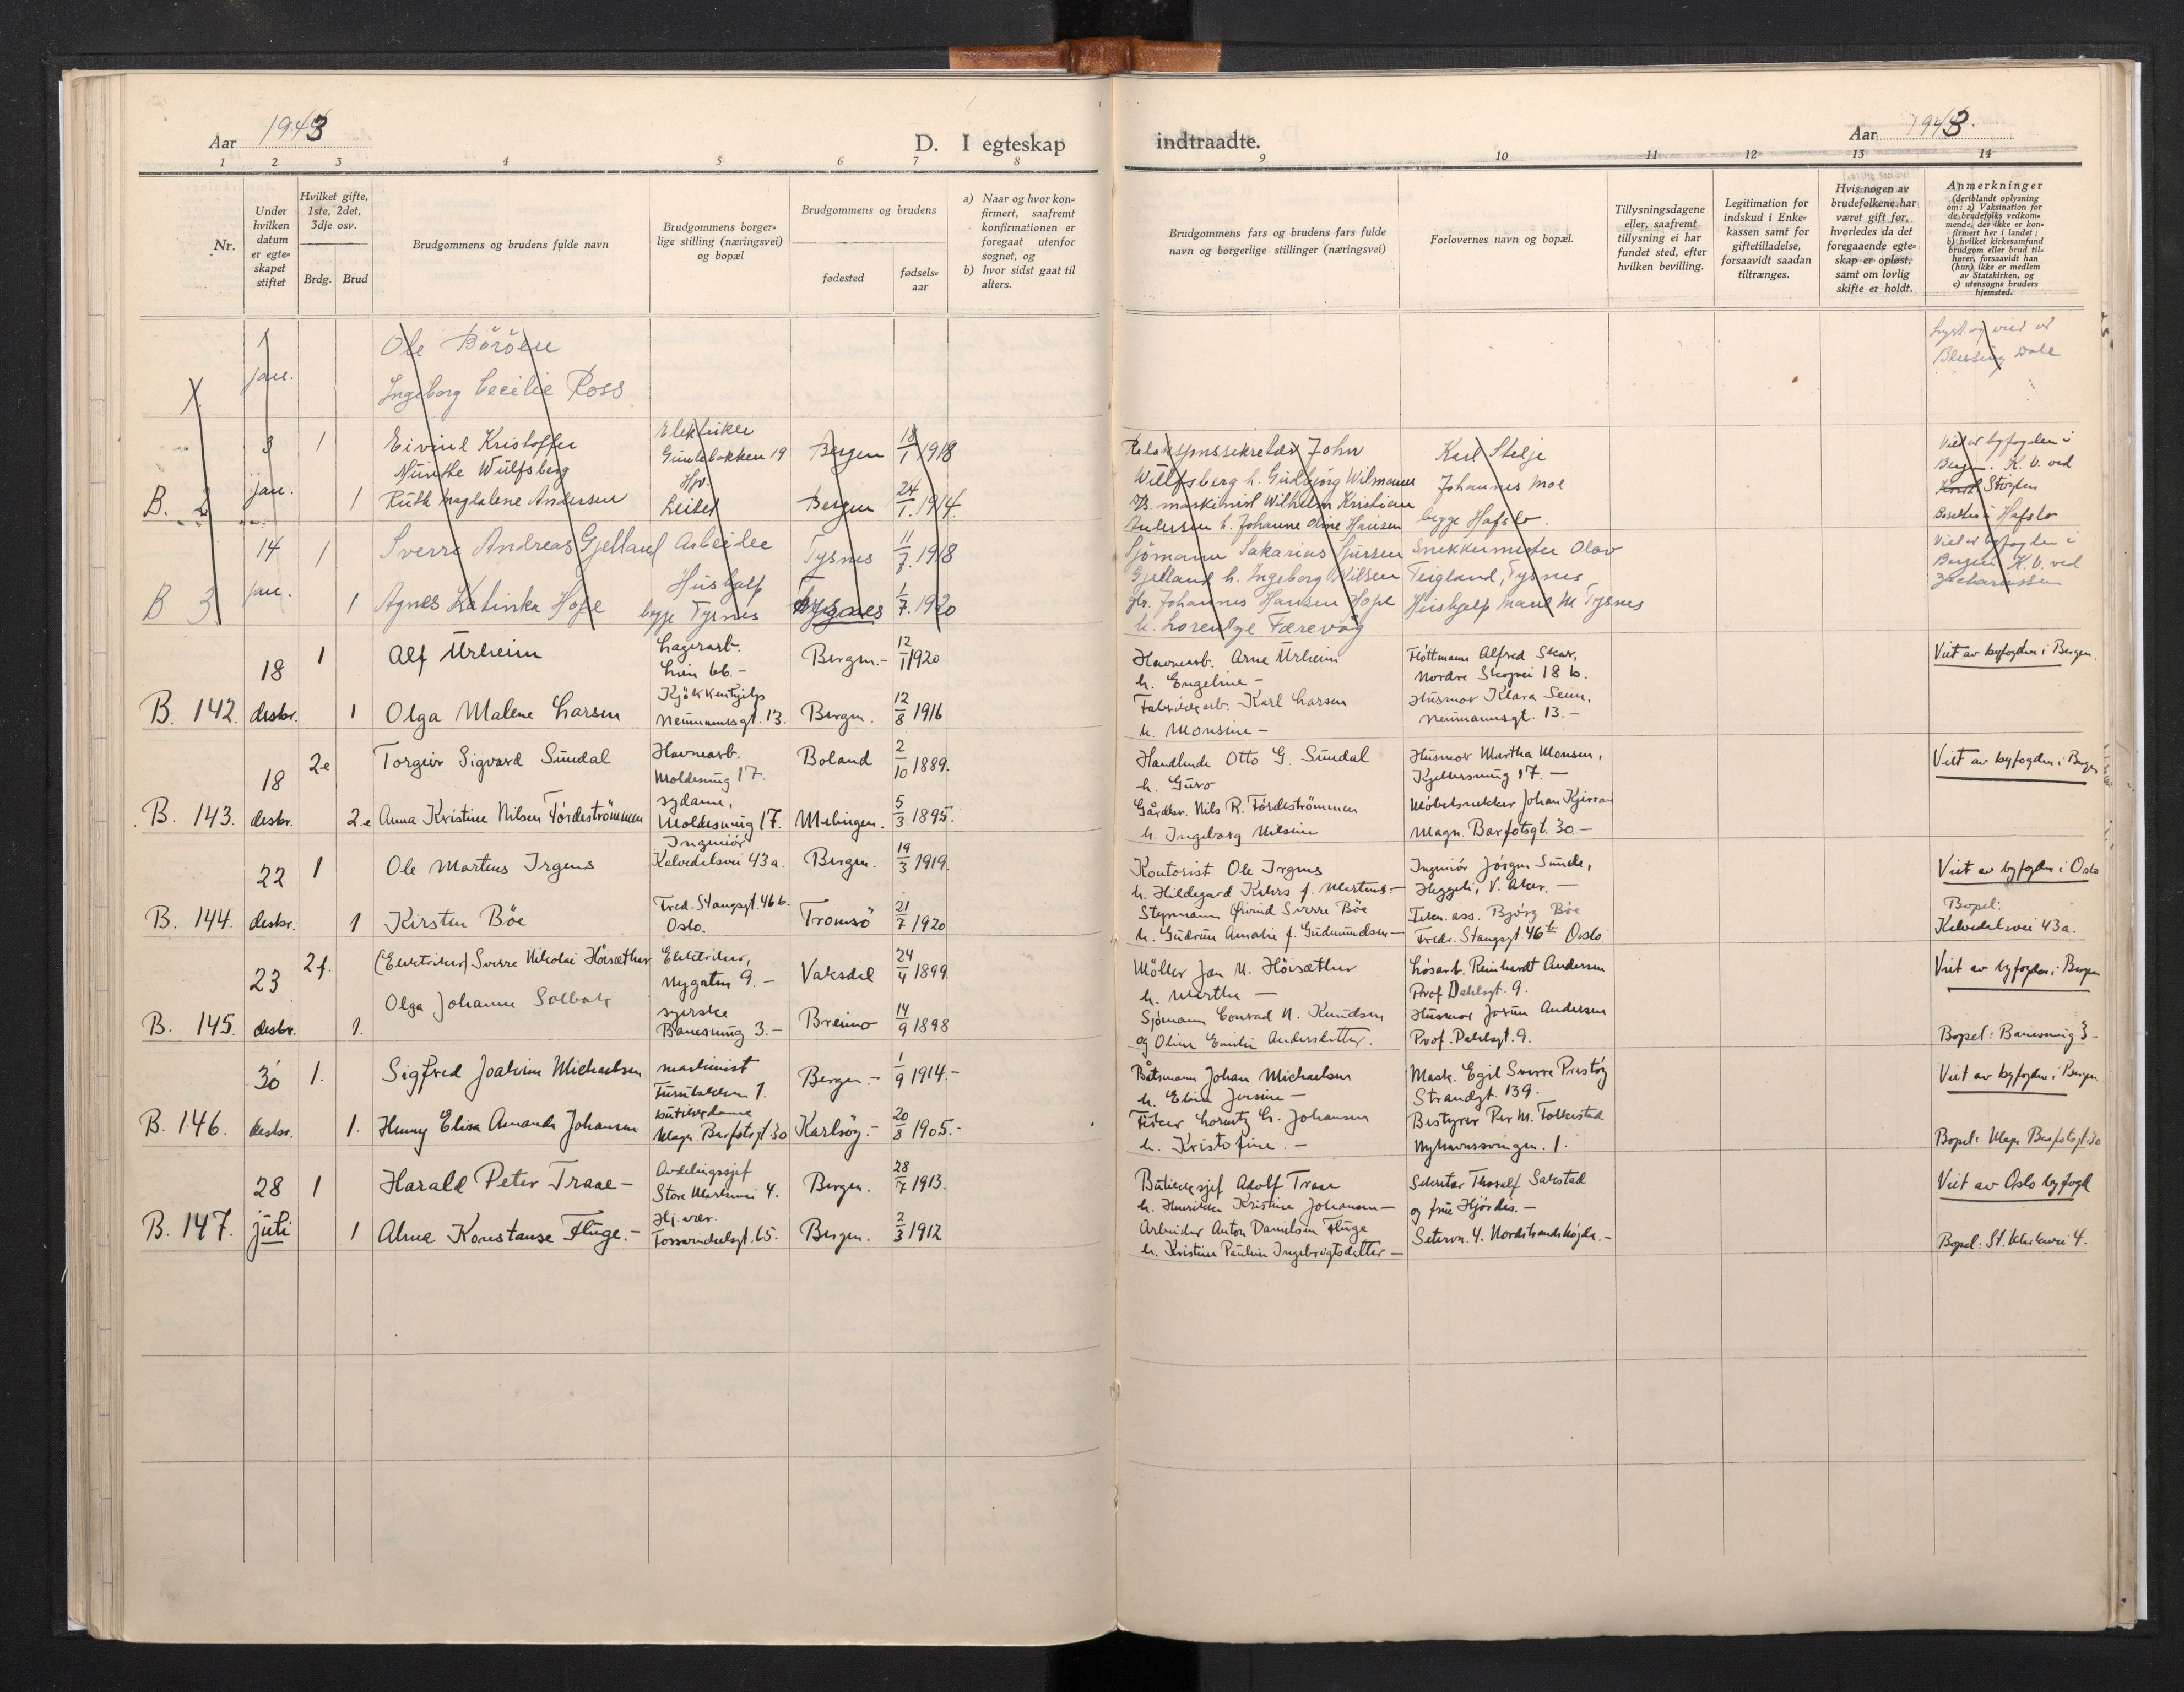 Aar 1943
D. I egteskap
indtraadte.
Aar 1943.
1 2 3 4 5 6 7 8
9 10 11 12 13 14
Nr.
Under hvilken datum er egte-skapet stiftet
Hvilket gifte, 1ste, 2det, 3dje osv.
Brdg. Brud
Brudgommens og brudens fulde navn
Brudgommens borger-lige stilling (næringsvei) og bopæl
Brudgommens og brudens
fødested
fødsels-aar
a) Naar og hvor kon-firmert, saafremt konfirmationen er foregaat utenfor sognet, og
b) hvor sidst gaat til alters.
Brudgommens fars og brudens fars fulde
navn og borgerlige stillinger (næringsvei)
Forlovernes navn og bopæl.
Tillysningsdagene eller, saafremt tillysning ei har fundet sted, efter hvilken bevilling.
Legitimation for indskud i Enke-kassen samt for giftetilladelse, forsaavidt saadan tiltrænges.
Hvis nogen av brudefolkene har været gift før, hvorledes da det foregaaende egte-skap er opløst, samt om lovlig skifte er holdt.
Anmerkninger
(deriblandt oplysning om: a) Vaksination for de brudefolks vedkom-mende, der ikke er kon-firmert her i landet; b) hvilket kirkesamfund brudgom eller brud til-hører, forsaavidt han (hun) ikke er medlem av Statskirken, og c) utensogns bruders hjemsted.
jan.
Ole Böröen
Ingeborg Cecilie Ross
Lyst og viet av
Blessing Dale
3 1
jan.
B. 2
Eivind Kristoffer
Munthe Wulfsberg
1 Ruth Magdalene Andersen
Elektriker
19
Bergen 18/1 1918
Bergen 24/1 1914.
John
Wulfsberg h. Gudbjörg Wilmann
maskinist Wilhelm Kristian
Andersen h. Johanne Oline Hansen
Karl Stelje
Johannes Moe
begge Hafslo.
Viet av byfogden i
Bergen. K. V. ved
Bosettes i Hafslo
14 1
jan.
B 3
Sverre Andreas Gjelland
1 Agnes Katinka Hope
Arbeider
Hushjelp
begge Tysnes
Tysnes 11/7 1918
Tysnes 1/7 1920
Sjömann Sakarias Sjursen
Gjelland h. Ingeborg Nilsen
Johannes Hansen Hope
h. Lorentze Færevåg
Snekkermester Olav
Teigland, Tysnes
Hushjelp Marie M Tysnes
Viet av byfogden i
Bergen K. V. ved
Zachariassen
18 1
B. 142. desbr. 1
Alf Urheim
Olga Malene Larsen
Lagerarb.
Lien 66.-
Kjökkenhjelp
Neumannsgt. 13.
Bergen.- 12/1 1920
Bergen. 12/8 1916
Havnearb. Arne Urheim
h. Engeline -
Fabrikkarb. Karl Larsen
h. Monsine -
Alfred Skar,
Nordre Skogvei 18 b.
Husmor Klara Seim,
Neumannsgt. 13.-
Viet av byfogden i Bergen.
18 2e
B. 143. desbr. 2.e
Torgeir Sigvard Sundal
Anna Kristine Nilsen Fördeströmmen
Havnearb.
Moldesmug 17.
sydame,
Moldesmug 17.
Boland 2/10 1889.
Melingen. 5/3 1895.
Handlende Otto G. Sundal
h. Guro
Gårdbr. Nils R. Fördeströmmen
h. Ingeborg Nilsine
Husmor Martha Monsen,
Kjellersmug 17. -
Möbelsnekker Johan Kjerran
Magn. Barfotsgt. 30.-
Viet av byfogden i Bergen
22 1
B. 144. desbr. 1
Ole Martens Irgens
Kirsten Böe
Ingeniör
Kalvedalsvei 43a.
Fred. Stangsgt. 46b.
Oslo.
Bergen. 19/3 1919.
Tromsö 21/7 1920
Kontorist Ole Irgens
h. Hildegard Kahrs f. Martens -
Styrmann Öivind Sverre Böe
h. Gudrun Amalie f. Gudmundsen -
Ingeniör Jörgen Sunde,
Heggeli, V. Aker. -
ass. Björg Böe
Fredr. Stangsgt. 46b Oslo
Viet av byfogden i Oslo
Bopel:
Kalvedalsvei 43a.
23 2f.
B. 145. desbr. 1.
(Elektriker) Sverre Nikolai Höisæther
Olga Johanne Solbakk
Elektriker,
Nygaten 9. -
syerske
Banesmug 3.-
Vaksdal 24/4 1899.
Bremo 14/9 1898
Möller Jan N. Höisæther
h. Martha -
Sjömann Conrad N. Knudsen
og Oline Emilie Andersdatter.
Lösarb. Reinhardt Andersen
Prof Dahlsgt. 9.
Husmor Jorun Andersen
Prof. Dahlsgt. 9.
Viet av byfogden i Bergen
Bopel: Banesmug 3-
30 1.
B. 146. desbr. 1.
Sigfred Joakim Michaelsen
Henny Elise Amanda Johansen
maskinist
1.
butikkdame
Magn. Barfotsgt 30
Bergen.- 1/9 1914.-
Karlsöy.- 20/8 1905.-
Båtsmann Johan Michaelsen
h. Elisa Jensine -
Fisker Lorentz H. Johansen
h. Kristofine. -
Mask. Egil Sverre Prestöy
Strandgt. 139.
Bestyrer Per M. Folkestad
Nyhavnssvingen. 1.
Viet av byfogden i Bergen
Bopel: Magn Barfotsgt 30
28 1
B. 147. juli 1
Harald Peter Traae -
Alma Konstanse Fluge.-
Avdelingssjef
Store Markevei 4.
Hj. vær.
65.
Bergen. 28/7 1913.
Bergen. 2/3 1912
Butikksjef Adolf Traae
h. Henrikke Kristine Johansen -
Arbeider Anton Danielsen Fluge
h. Kristine Pauline Ingebrigtsdatter -
Sekretær Thoralf Sakstad
og frue Hjördis. -
Setervn. 4. Nordstrandshögda.-
Viet av Oslo byfogd
Bopel: St. Markevei 4.